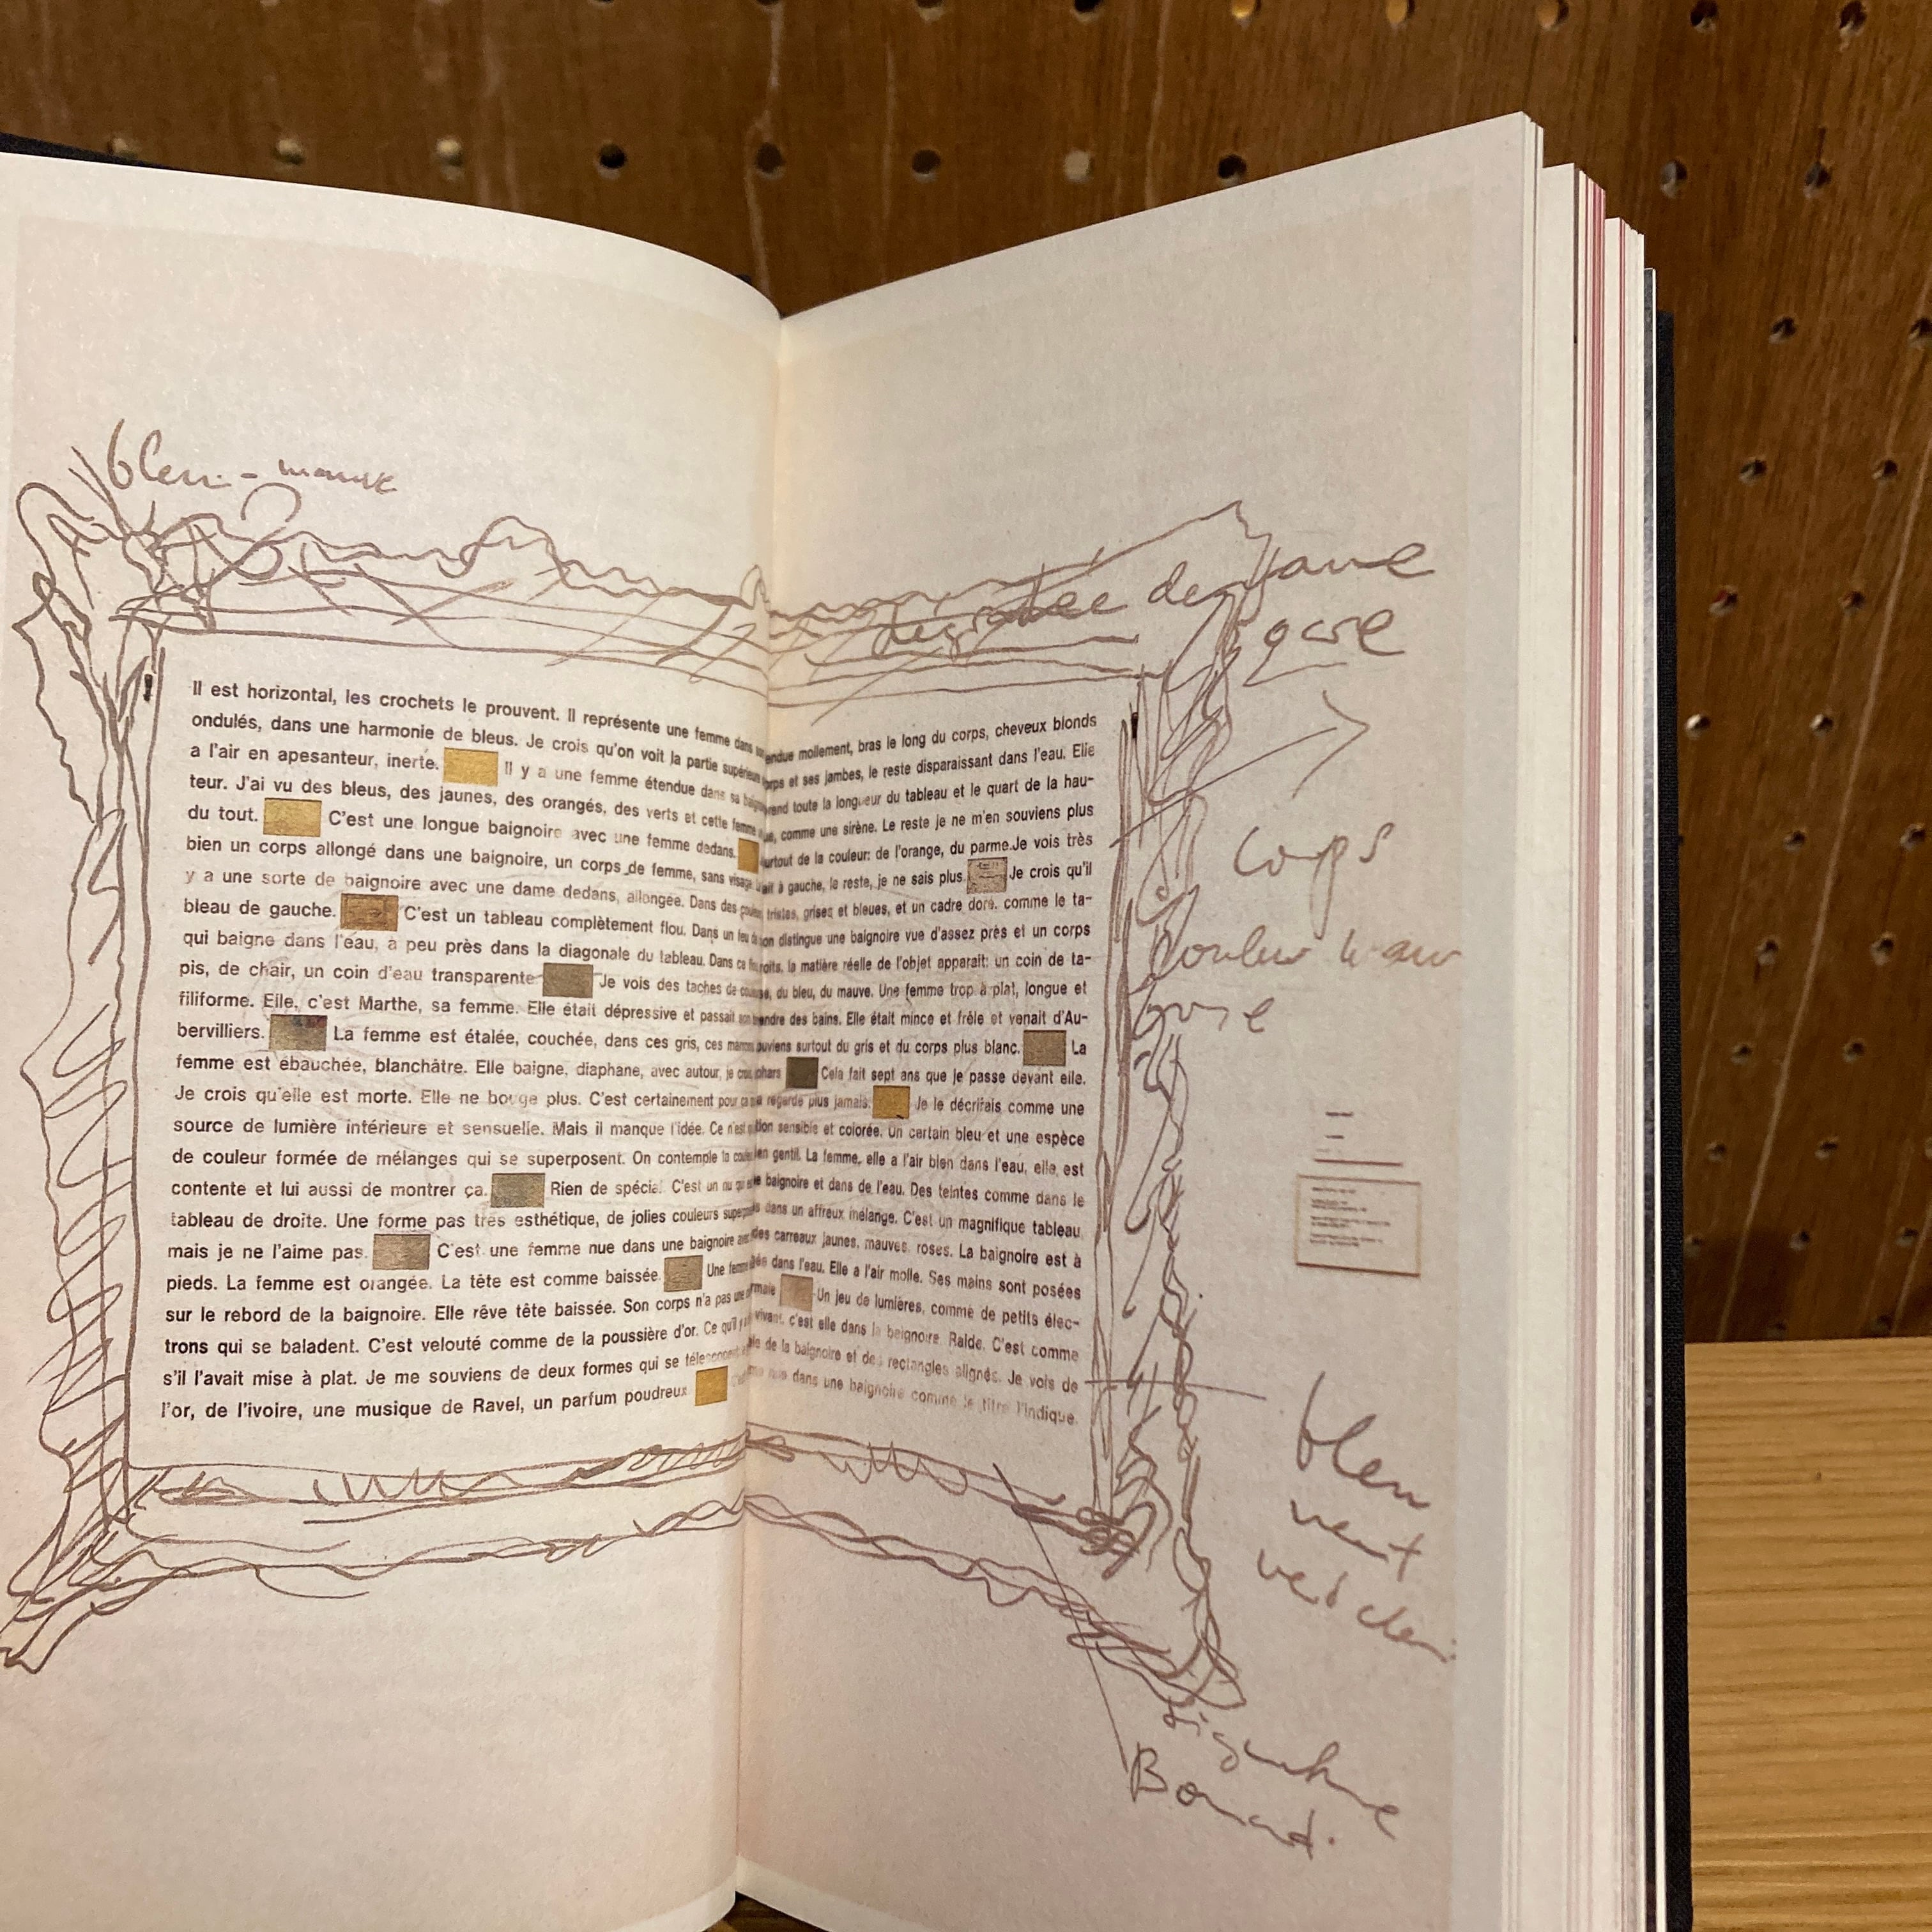 bleu - mauve
dégradée de jaune
gris
Il est horizontal, les crochets le prouvent. Il représente une femme dans son endue mollement, bras le long du corps, cheveux blonds
ondulés, dans une harmonie de bleus. Je crois qu'on voit la partie supérieure corps et ses jambes, le reste disparaissant dans l'eau. Elle
a l'air en apesanteur, inerte. Il y a une femme étendue dans sa prend toute la longueur du tableau et le quart de la hau-
teur. J'ai vu des bleus, des jaunes, des orangés, des verts et cette femme comme une sirène. Le reste je ne m'en souviens plus
du tout. C'est une longue baignoire avec une femme dedans. surtout de la couleur: de l'orange, du parme. Je vois très
bien un corps allongé dans une baignoire, un corps de femme, sans visage à gauche, le reste, je ne sais plus. Je crois qu'il
y a une sorte de baignoire avec une dame dedans, allongée. Dans des tristes, grises et bleues, et un cadre doré, comme le ta-
bleau de gauche. C'est un tableau complètement flou. Dans un distingue une baignoire vue d'assez près et un corps
qui baigne dans l'eau, à peu près dans la diagonale du tableau. Dans la matière réelle de l'objet apparaît: un coin de ta-
pis, de chair, un coin d'eau transparente Je vois des taches de du bleu, du mauve. Une femme trop à plat, longue et
filiforme. Elle, c'est Marthe, sa femme. Elle était dépressive et passait des bains. Elle était mince et frêle et venait d'Au-
bervilliers. La femme est étalée, couchée, dans ces gris, ces surtout du gris et du corps plus blanc. La
femme est ébauchée, blanchâtre. Elle baigne, diaphane, avec autour, je Cela fait sept ans que je passe devant elle.
Je crois qu'elle est morte. Elle ne bouge plus. C'est certainement pour regarde plus jamais. Je le décrirais comme une
source de lumière intérieure et sensuelle. Mais il manque l'idée. Ce n'est sensible et colorée. Un certain bleu et une espèce
de couleur formée de mélanges qui se superposent. On contemple la gentil. La femme, elle a l'air bien dans l'eau, elle est
contente et lui aussi de montrer ça. Rien de spécial. C'est un baignoire et dans de l'eau. Des teintes comme dans le
tableau de droite. Une forme pas très esthétique, de jolies couleurs dans un affreux mélange. C'est un magnifique tableau
mais je ne l'aime pas. C'est une femme nue dans une baignoire des carreaux jaunes, mauves, roses. La baignoire est à
pieds. La femme est orangée. La tête est comme baissée. Une dans l'eau. Elle a l'air molle. Ses mains sont posées
sur le rebord de la baignoire. Elle rêve tête baissée. Son corps n'a pas une Un jeu de lumières, comme de petits élec-
trons qui se baladent. C'est velouté comme de la poussière d'or. Ce vivant, c'est elle dans la baignoire. Raide. C'est comme
s'il l'avait mise à plat. Je me souviens de deux formes qui se de la baignoire et des rectangles alignés. Je vois de
l'or, de l'ivoire, une musique de Ravel, un parfum poudreux. nue dans une baignoire comme le titre l'indique.
corps
couleur
bleu
vert
vert clair
signature
Bonnard.